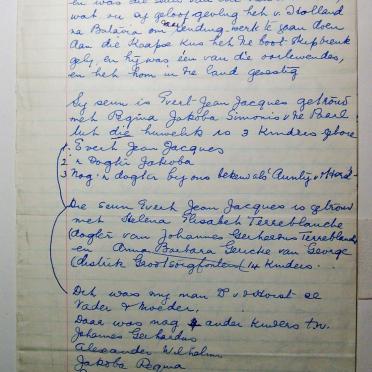 en was die seun van
wat vir sy geloof gevlug het v. Holland
na Batavia om sending werk te gaan doen
Aan die Kaapse Kus het die boot skipbreuk
gely, en hy was één van die oorlewendes,
en het hom in die land gevestig
Sy seun is Evert Jean Jacques getroud
met Regina Jakoba Simonis v/d Paarl
Uit die huwelik is 3 kinders gebore
1. Evert Jean Jacques
2. 'n Dogter Jakoba
3 Nog 'n dogter by ons beken as' Aunty v d Horst -
Die seun Evert Jean Jacques is getroud
met Helena Elisabet Terreblanche
(dogter van Johannes Gerhardus Terreblanche
en Anna Barbara Gericke van George
(distrik Grootborgfontein) 14 kinders.
Dit was my man Dr v d Horst se
Vader & Moeder.
Daar was nog ander kinders t.w.
Johannes Gerhardus
Alexander Wilhelm
Jakoba Regina